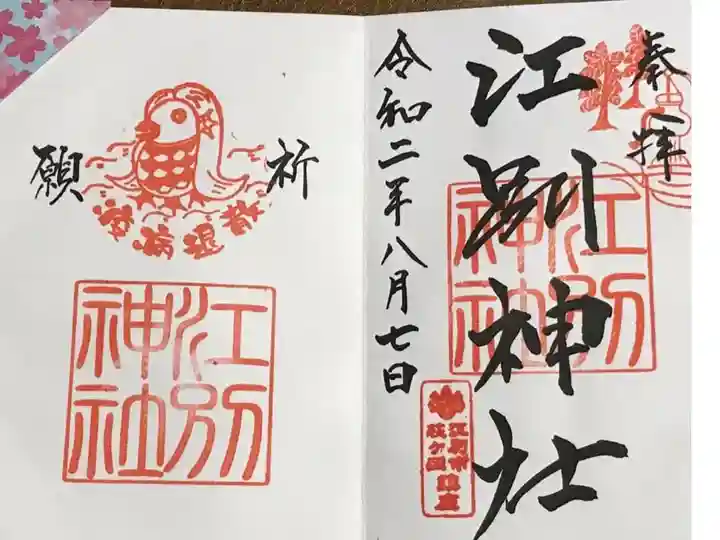 奉拝
江別神社
江別
神社
江別市
萩ヶ岡
鎮座
令和二年八月七日
祈願
疫病退散
江別
神社